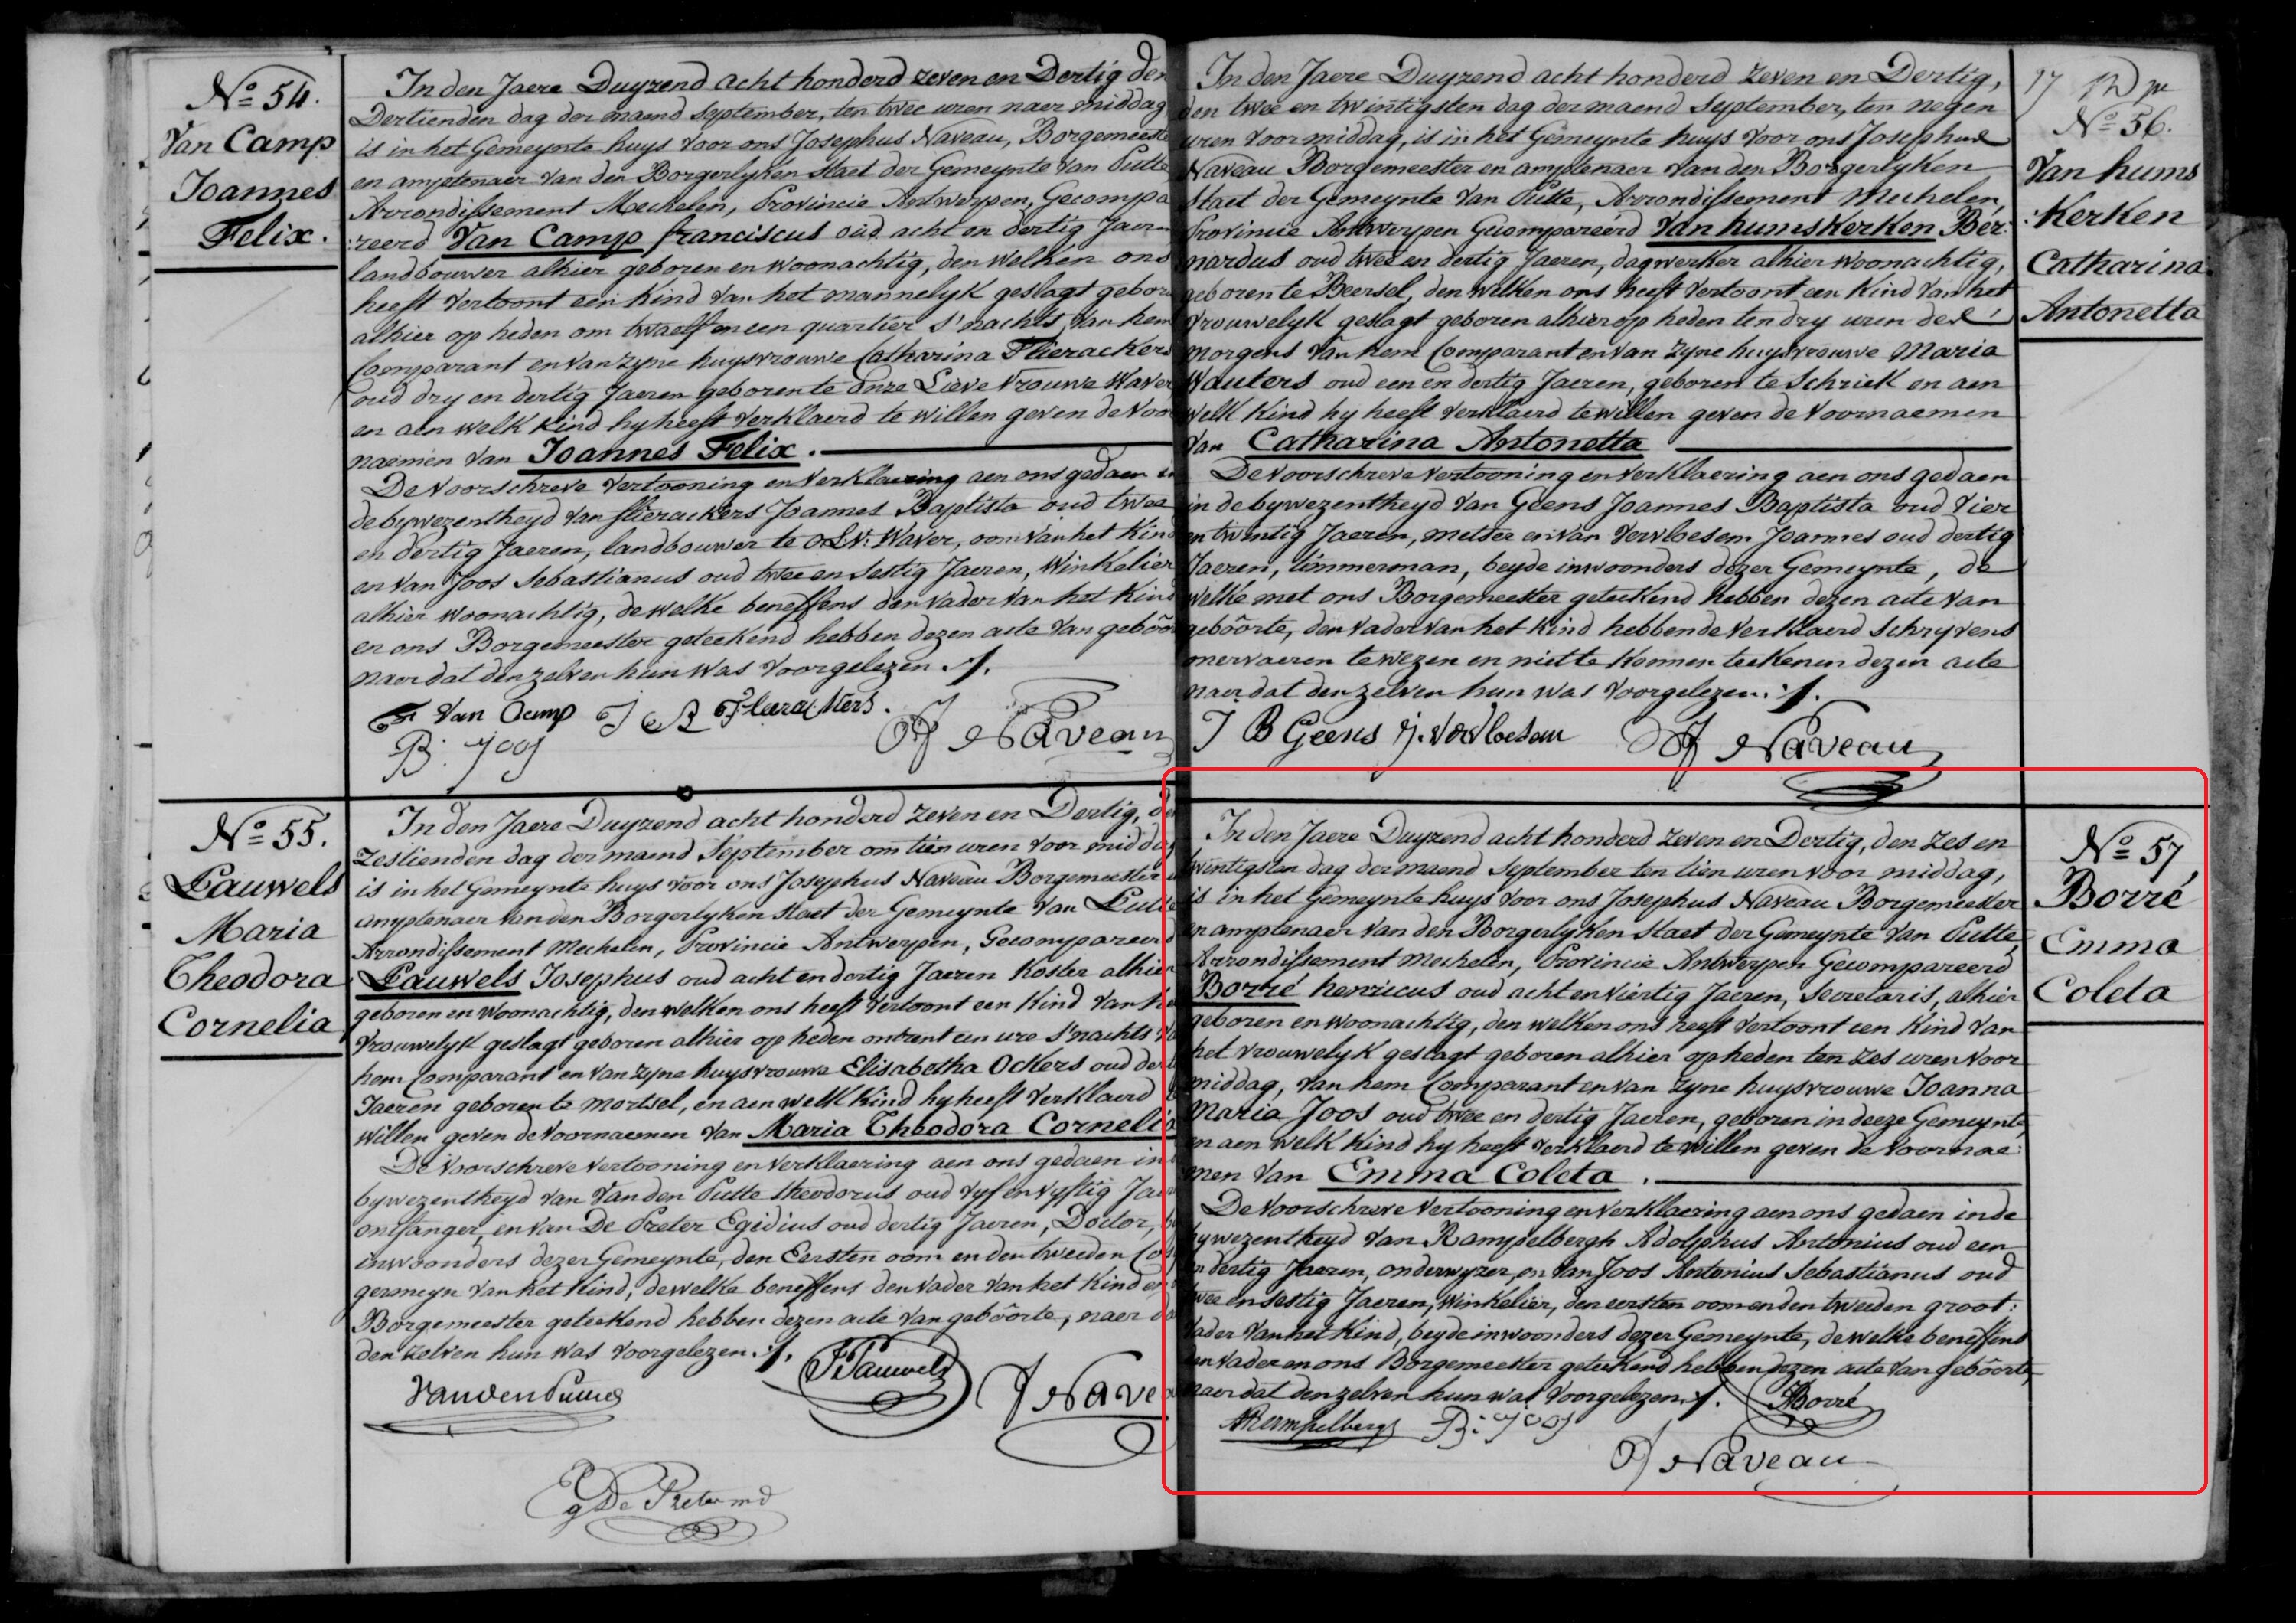 No 54.
Van Camp
Joannes
Felix.
In den Jaere Duyzend acht honderd zeven en Dertig den
Dertienden dag der maend September, ten twee uren naer middag
is in het Gemeynte huys voor ons Josephus Naveau, Borgemeeste
en amptenaer van den Borgerlyken staet der Gemeynte van Putte
Arrondissement Mechelen, Provincie Antwerpen, Gecompa
:reerd Van Camp franciscus oud acht en dertig Jaeren
landbouwer alhier geboren en woonachtig, den welken ons
heeft vertoont een kind van het mannelyk geslagt gebore
alhier op heden om twaelf en een quartier s'nachts, van hem
Comparant en van zyne huysvrouwe Catharina Flierackers
oud dry en dertig Jaeren geboren te Onze Lieve Vrouwe Waver
en aen welk kind hy heeft verklaerd te willen geven de voor
naemen van Joannes Felix.
De voorschreve vertooning en verklaering aen ons gedaen in
de bywezentheyd van flierackers Joannes Baptista oud twee
en dertig Jaeren, landbouwer te O.L.V. Waver, oom van het kind
en van Joos Sebastianus oud twee en sestig Jaeren, Winkelier
alhier woonachtig, de welke beneffens den vader van het kind
en ons Borgemeester geteekend hebben dezen acte van geboor
naer dat den zelven hun was voorgelezen ./.
F Van Camp J B Flierackers.
B: Joos
J Naveau
No 55.
Pauwels
Maria
Theodora
Cornelia
In den Jaere Duyzend acht honderd zeven en Dertig, de
zestienden dag der maend September om tien uren voor midda
is in het Gemeynte huys voor ons Josephus Naveau Borgemeester
amptenaer van den Borgerlyken staet der Gemeynte van Putte
Arrondissement Mechelen, Provincie Antwerpen, Gecompareerd
Pauwels Josephus oud acht en dertig Jaeren Koster alhier
geboren en woonachtig, den welken ons heeft vertoont een kind van he
vrouwelyk geslagt geboren alhier op heden ontrent een ure s'nachts va
hem Comparant en van zyne huysvrouwe Elisabetha Ockers oud dert
Jaeren geboren te Mortsel, en aen welk kind hy heeft verklaerd
willen geven de voornaemen van Maria Theodora Cornelia
De voorschreve vertooning en verklaering aen ons gedaen in
bywezentheyd van Van den Putte theodorus oud vyf en vyftig Jaer
ontfanger, en van De Preter Egidius oud dertig Jaeren, Doctor,
inwoonders dezer Gemeynte, den Eersten oom en den tweeden Co
germeyn van het kind, de welke beneffens den vader van het kind en
Borgemeester geteekend hebben dezen acte van geboôrte, naer da
den zelven hun was voorgelezen ./.
J Pauwels
VandenPutte
J Nave
Eg De Preter md
In den Jaere Duyzend acht honderd zeven en Dertig,
den twee en twintigsten dag der maend September, ten negen
uren voor middag, is in het Gemeynte huys voor ons Josephus
Naveau Borgemeester en amptenaer van den Borgerlyken
staet der Gemeynte van Putte, Arrondissement Mechelen,
Provincie Antwerpen Gecompareerd Van humskerken Ber:
nardus oud twee en dertig Jaeren, dagwerker alhier woonachtig,
geboren te Beersel, den welken ons heeft vertoont een kind van het
vrouwelyk geslagt geboren alhier op heden ten dry uren des
morgens van hem Comparant en van zyne huysvrouwe Maria
Wauters oud een en dertig Jaeren, geboren te Schriek en aen
welk kind hy heeft verklaerd te willen geven de voornaemen
van Catharina Antonetta
De voorschreve vertooning en verklaering aen ons gedaen
in de bywezentheyd van Geens Joannes Baptista oud vier
en twintig Jaeren, metser en van Vervloesem Joannes oud dertig
Jaeren, timmerman, beyde inwoonders dezer Gemeynte, de
welke met ons Borgemeester geteekend hebben dezen acte van
geboôrte, den vader van het kind hebbende verklaerd schryvens
onervaeren te wezen en niet te konnen teekenen dezen acte
naer dat den zelven hun was voorgelezen. ./.
J B Geens J. Vervloesem
J Naveau
17
No 56.
Van hums
:Kerken
Catharina
Antonetta
In den Jaere Duyzend acht honderd zeven en Dertig, den zes en
twintigsten dag der maend September ten tien uren voor middag,
is in het Gemeynte huys voor ons Josephus Naveau Borgemeester
en amptenaer van den Borgerlyken staet der Gemeynte van Putte,
Arrondissement Mechelen, Provincie Antwerpen Gecompareerd
Borré henricus oud acht en viertig Jaeren, Secretaris, alhier
geboren en woonachtig, den welken ons heeft vertoont een kind van
het vrouwelyk geslagt geboren alhier op heden ten zes uren voor
middag, van hem Comparant en van zyne huysvrouwe Joanna
Maria Joos oud twee en dertig Jaeren, geboren in deeze Gemeynte,
en aen welk kind hy heeft verklaerd te willen geven de voornae:
men van Emma Coleta.
De voorschreve vertooning en verklaering aen ons gedaen in de
bywezentheyd van Rampelbergh Adolphus Antonius oud een
en dertig Jaeren, onderwyzer, en van Joos Antonius Sebastianus oud
twee en sestig Jaeren, Winkelier, den eersten oom en den tweeden groot:
vader van het kind, beyde inwoonders dezer Gemeynte, de welke beneffens
den vader en ons Borgemeester geteekend hebben dezen acte van geboôrte,
naer dat den zelven hun was voorgelezen ./. HBorré
ARampelbergh B: Joos
J Naveau
No 57,
Borré
Emma
Coleta